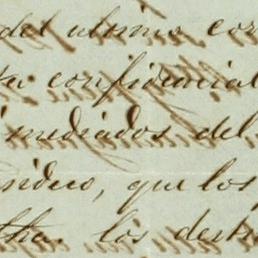 del ultimo cor
ta confidencial
mediados del
ndico, que los
tha. los dest